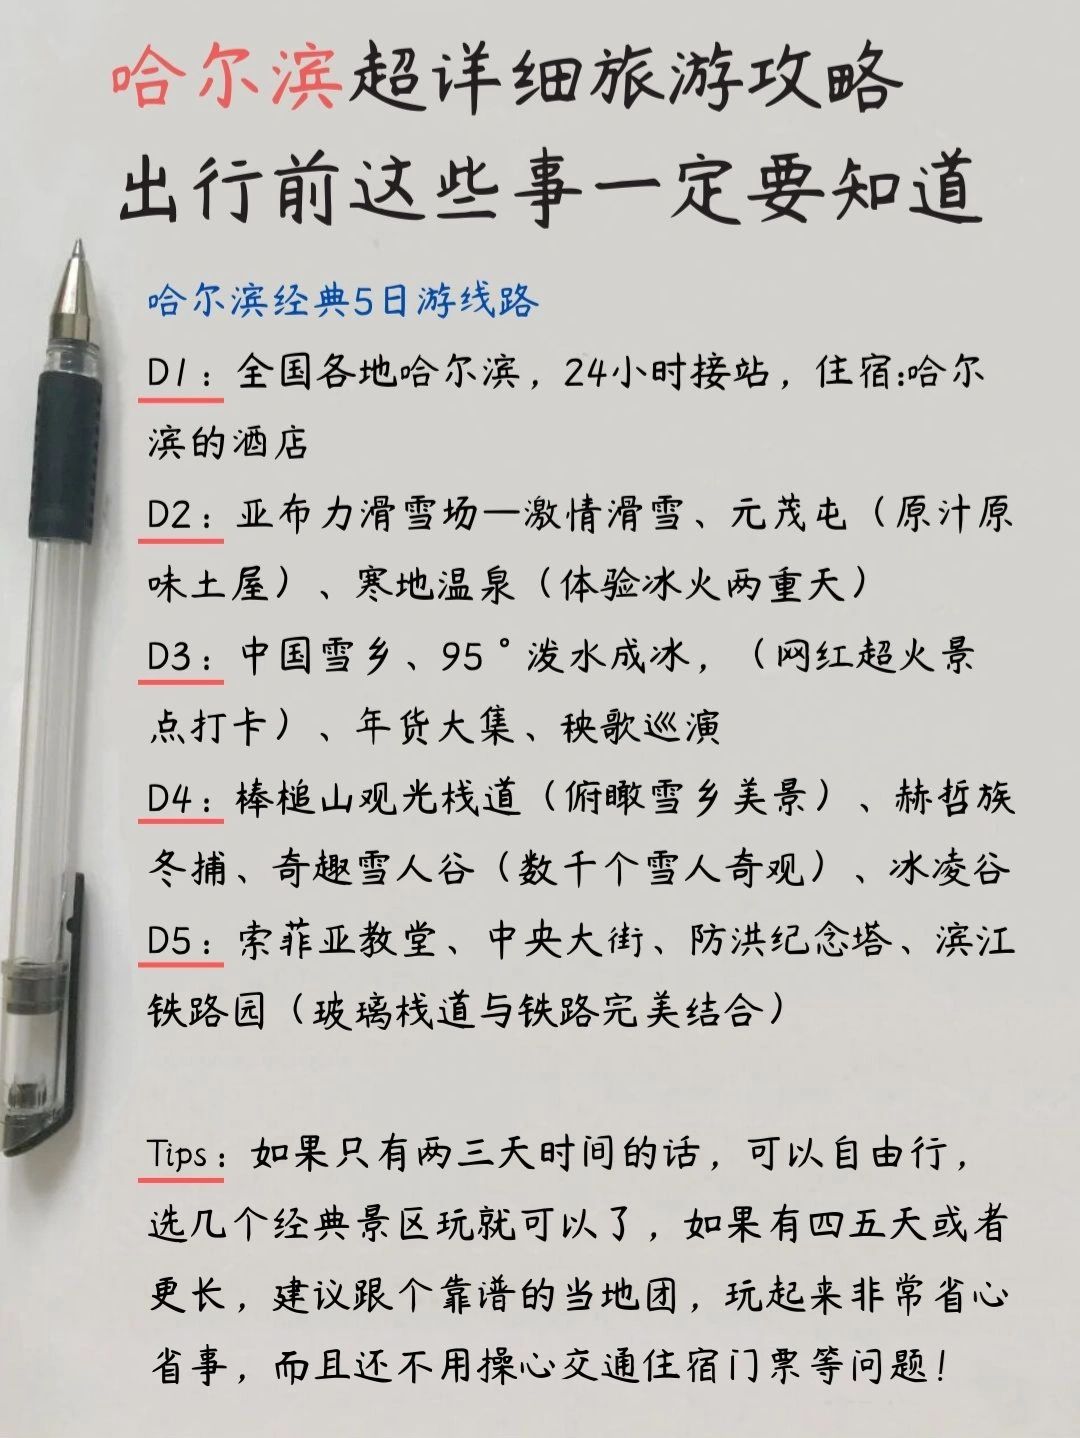 哈尔滨超详细旅游攻略
出行前这些事一定要知道
哈尔滨经典5日游线路
D1：全国各地哈尔滨，24小时接站，住宿:哈尔
滨的酒店
D2：亚布力滑雪场—激情滑雪、元茂屯（原汁原
味土屋）、寒地温泉（体验冰火两重天）
D3：中国雪乡、95°泼水成冰，（网红超火景
点打卡）、年货大集、秧歌巡演
D4：棒槌山观光栈道（俯瞰雪乡美景）、赫哲族
冬捕、奇趣雪人谷（数千个雪人奇观）、冰凌谷
D5：索菲亚教堂、中央大街、防洪纪念塔、滨江
铁路园（玻璃栈道与铁路完美结合）
Tips：如果只有两三天时间的话，可以自由行，
选几个经典景区玩就可以了，如果有四五天或者
更长，建议跟个靠谱的当地团，玩起来非常省心
省事，而且还不用操心交通住宿门票等问题！